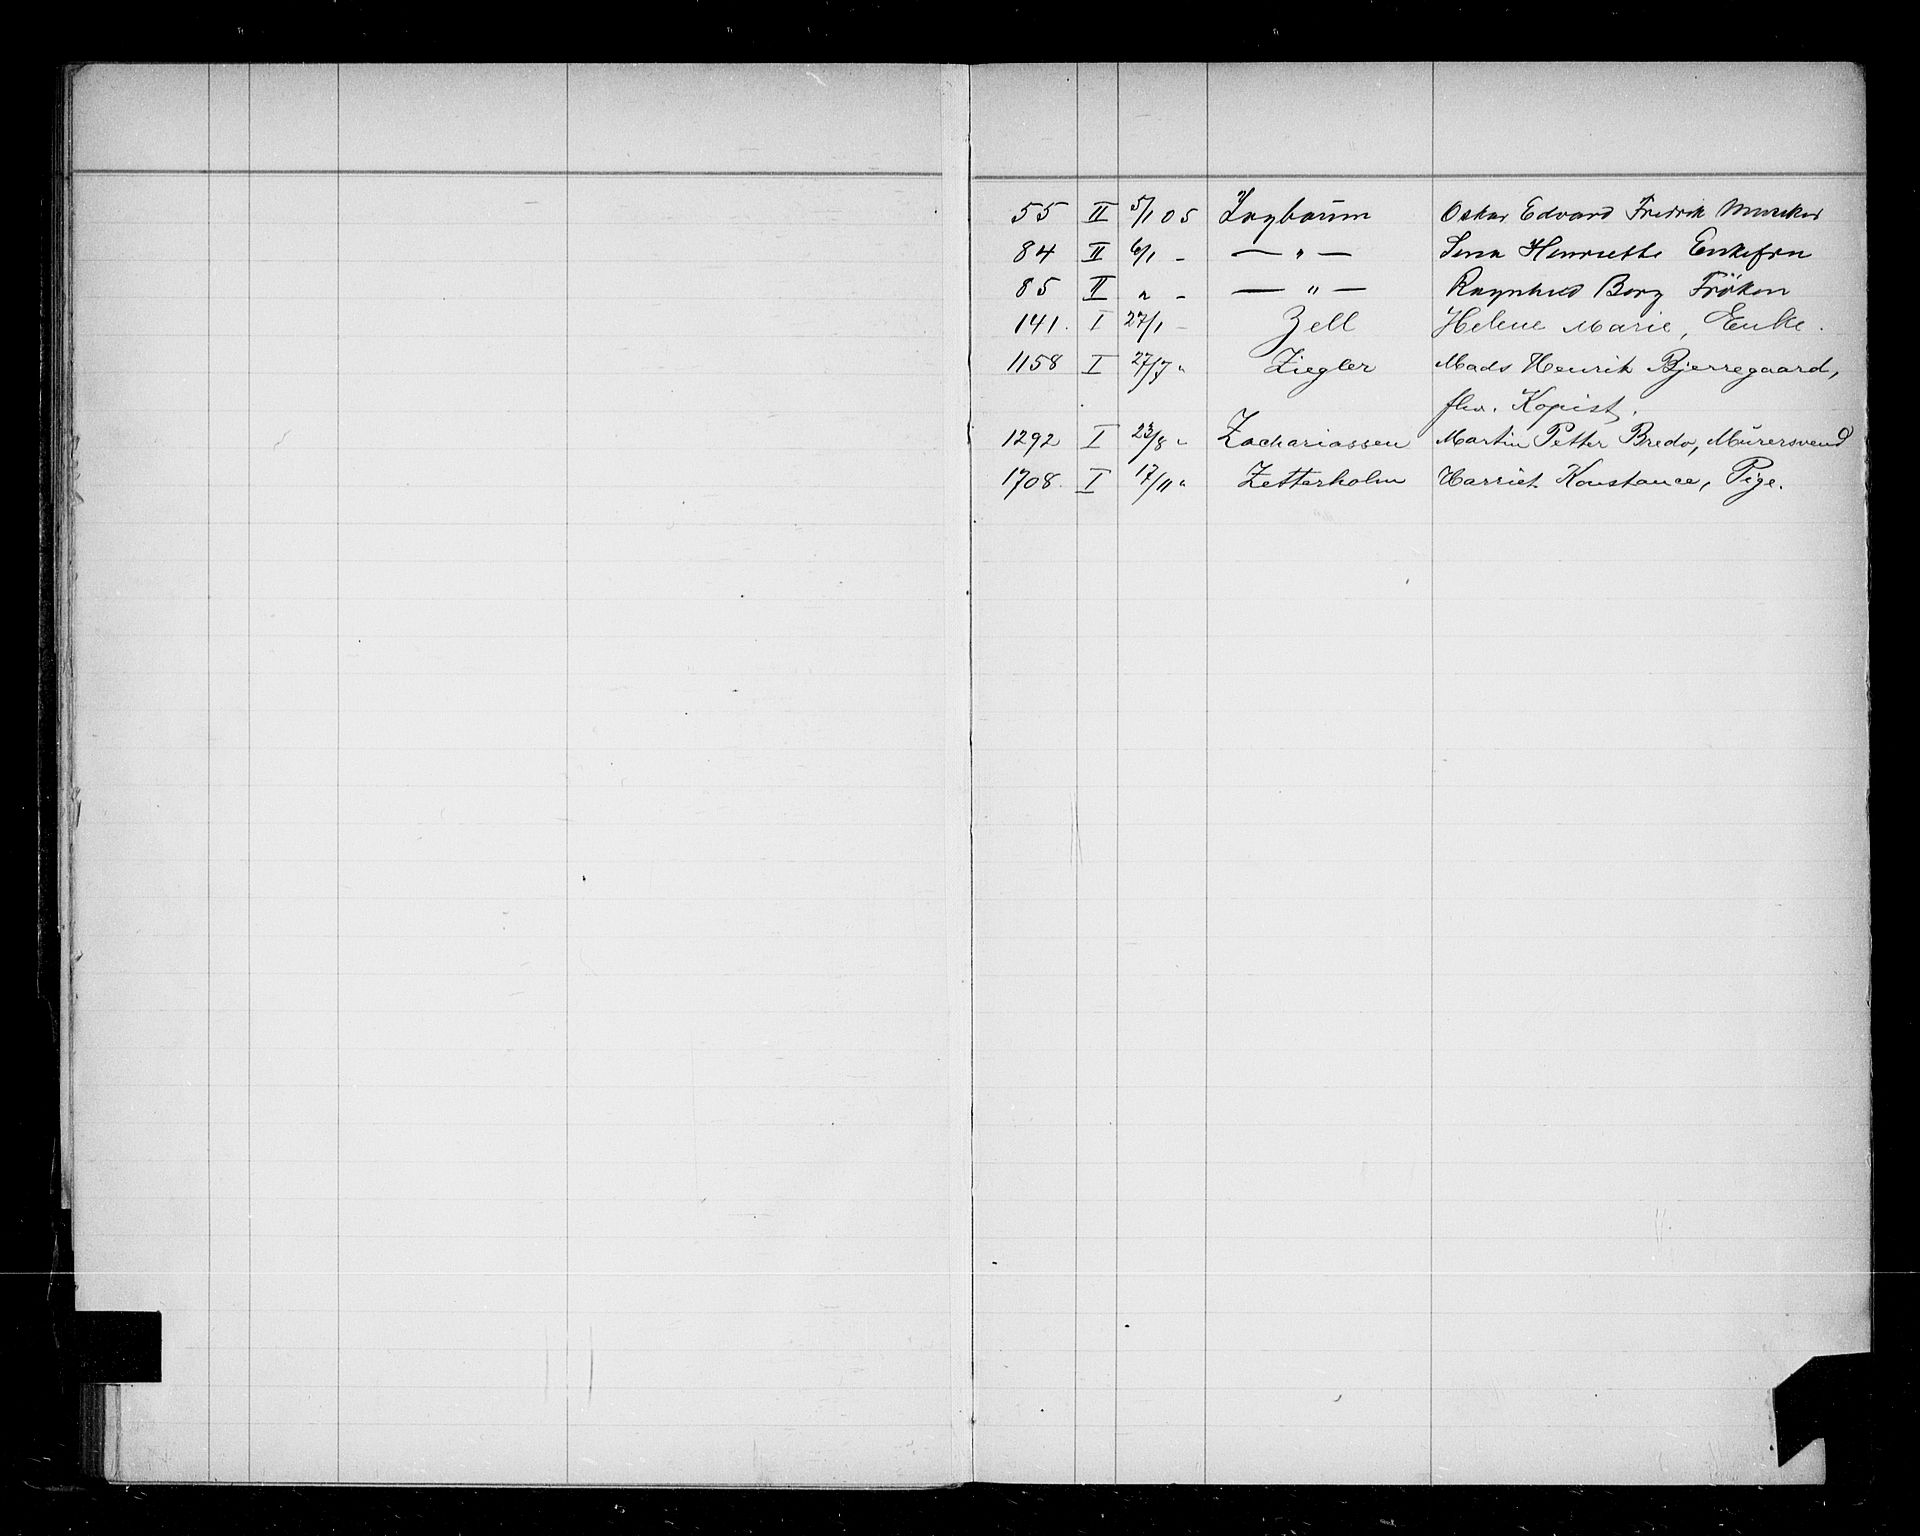 55 II 5/1 05 Zagbaum Oskar Edvard Fredrik Musiker
84 II 6/1 - — " — Lena Henriette Enkefru
85 II " - — " — Ragnhild Borg Frøken
141. I 27/1 - Zell Helene Marie, Enke.
1158 I 27/7 " Ziegler Mads Henrik Bjerregaard,
fhv. Kopist.
1292 I 23/8 " Zachariassen Martin Petter Bredo, Murersvend
1708. I 17/11 " Zetterholm Harriet Konstance, Pige.